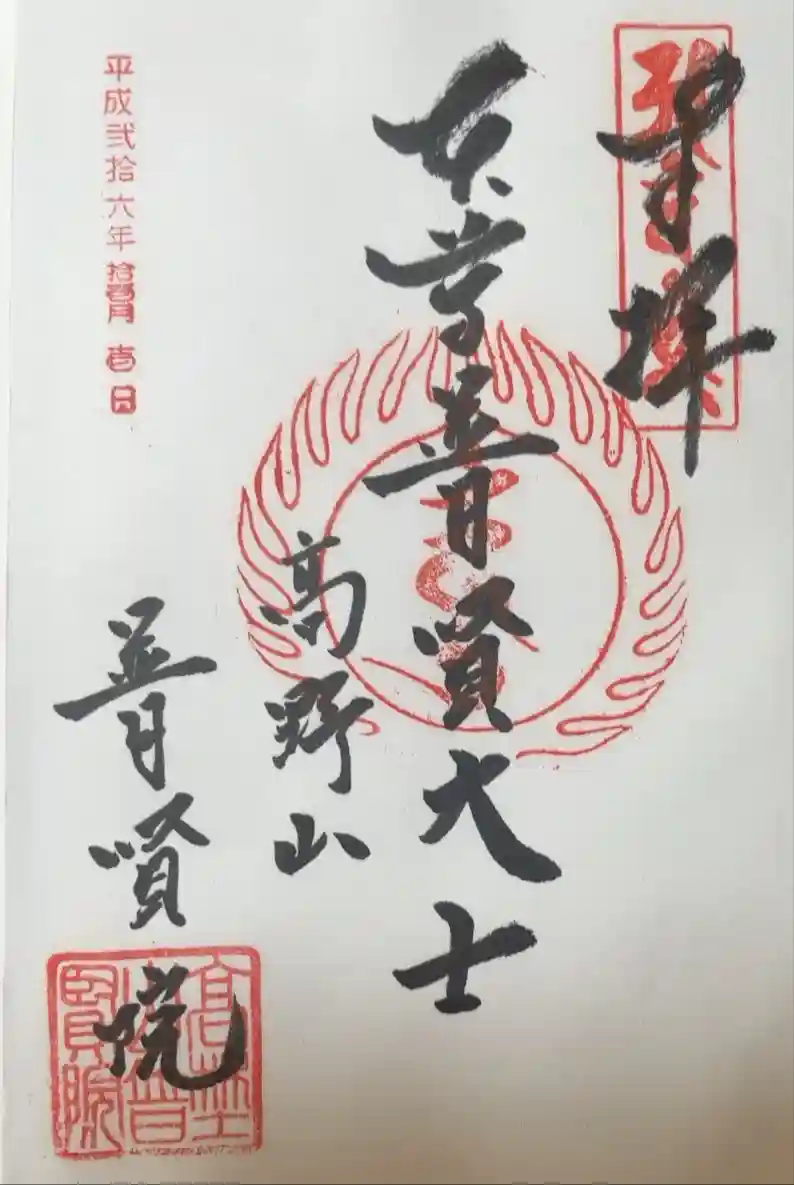 奉拝
本尊普賢大士
高野山
普賢院
平成弐拾六年拾壱月壱日
高埜
山普
賢院